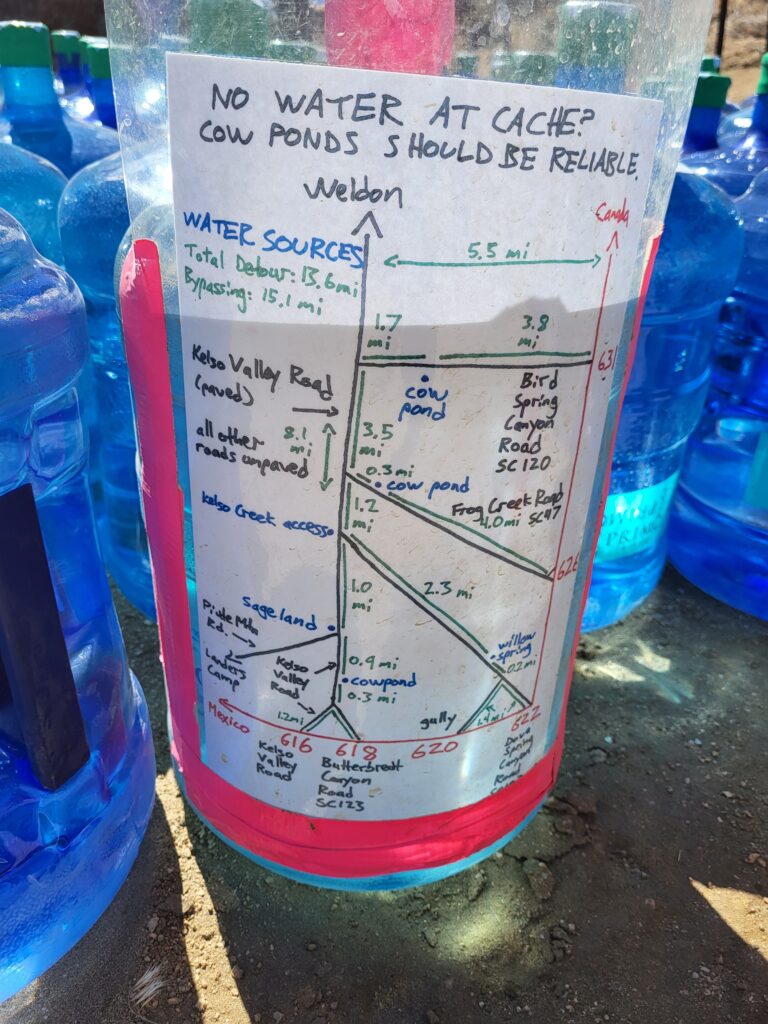 NO WATER AT CACHE?
COW PONDS SHOULD BE RELIABLE.
Weldon
Canada
WATER SOURCES
Total Detour: 13.6mi
Bypassing: 15.1 mi
5.5 mi
1.7
mi
3.8
mi
631
Kelso Valley Road
(paved)
cow
pond
Bird
Spring
Canyon
Road
SC120
all other
roads unpaved
8.1
mi
3.5
mi
0.3mi
cow pond
Frog Creek Road
4.0mi SC47
Kelso Creek access
1.2
mi
626
1.0
mi
2.3 mi
Sageland
Piute Mtn
Rd.
Landers
Camp
Kelso
Valley
Road
0.9 mi
cowpond
0.3 mi
willow
spring
0.2mi
Mexico
1.2mi
gully
1.4mi
616
618
620
622
Kelso
Valley
Road
Butterbredt
Canyon
Road
SC123
Dove
Spring
Canyon
Road